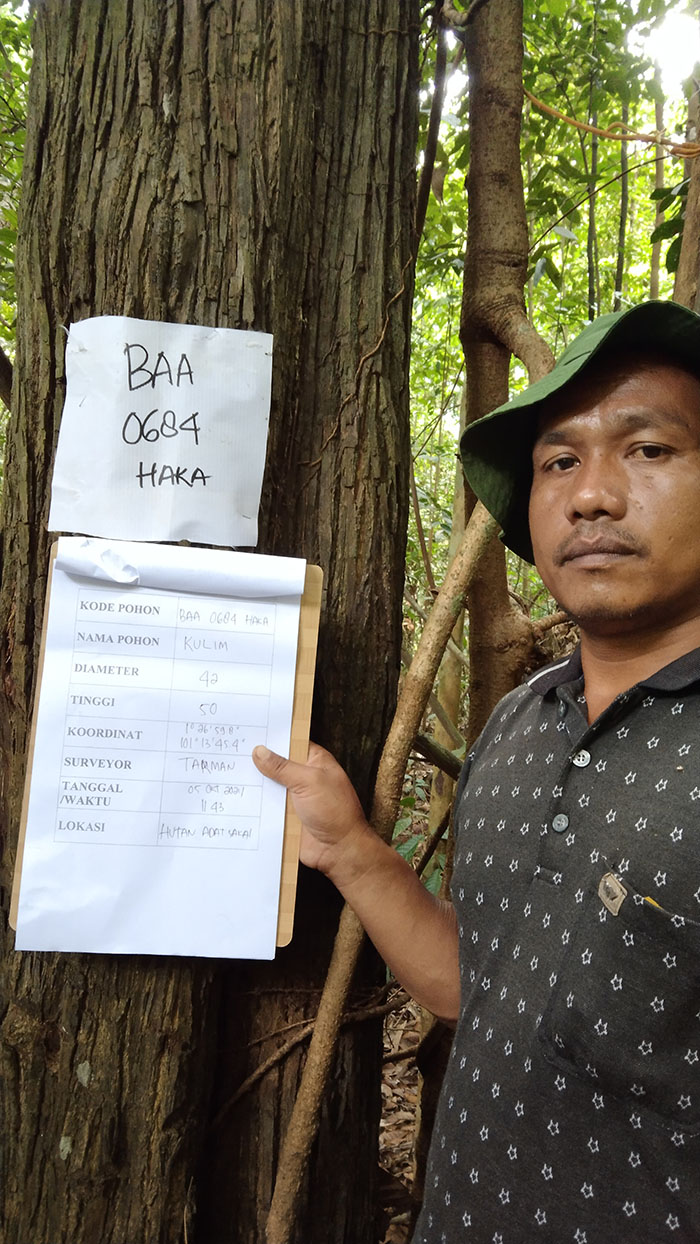 BAA
0684
HAKA
KODE POHON BAA 0684 HAKA
NAMA POHON KULIM
DIAMETER 42
TINGGI 50
KOORDINAT 1°26'59.8"
101°13'45.4"
SURVEYOR TARMAN
TANGGAL 05 Okt 2021
/WAKTU 11 43
LOKASI HUTAN ADAT SAKAI